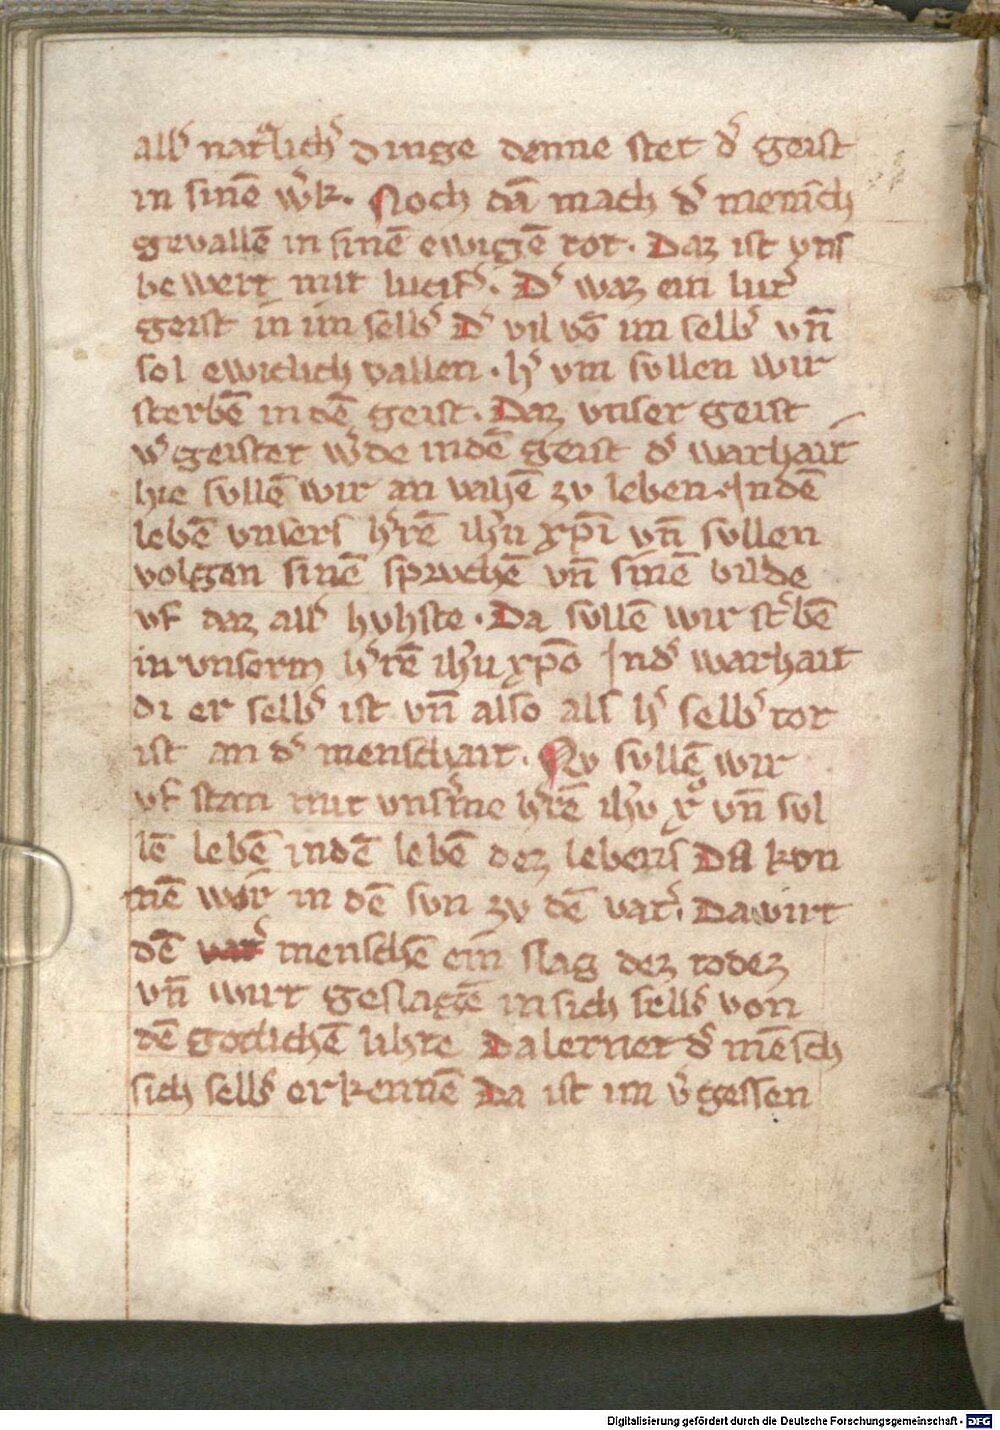 allˢ natᵉlichˢ dinge denne stet dˢ geist
in sinē wˢk. Noch dā mach dˢ mensch
gevallē in sinē ewigē tot. Daz ist vns
bewert mit lucifˢ. Dˢ waz ein lutˢ
geist in im selbˢ Dˢ vil vō im selbˢ vn̄
sol ewiclich vallen. hˢ vm sullen wir
sterbē in dē geist. Daz vnser geist
vˢgeistet wˢde in dē geist dˢ warhait
hie sullē wir an vahē zv leben. In dē
lebē vnsers hˢrē ih̄u xp̄i vn̄ sullen
volgen sinē sprvchē vn̄ sinē bilde
vf daz allˢ hvhste. Da sullē wir stˢbē
in vnserm hˢrē ih̄u xp̄o In dˢ warhait
di er selbˢ ist vn̄ also als hˢ selbˢ tot
ist an dˢ menschait. Nv sullē wir
vf stan mit vnsˢme hˢrē ih̄v xº vn̄ sul
lē lebē in dē lebē dez lebens Da kvn
nē wir in dē svn zv dē vatˢ. Da wirt
dē vatˢ menschē ein slag dez todez
vn̄ wirt geslagē in sich selbˢ von
dē gotlichē lihte Da lernet dˢ mēsch
sich selbˢ erkennē Da ist im vˢgessen
Digitalisierung gefördert durch die Deutsche Forschungsgemeinschaft - DFG